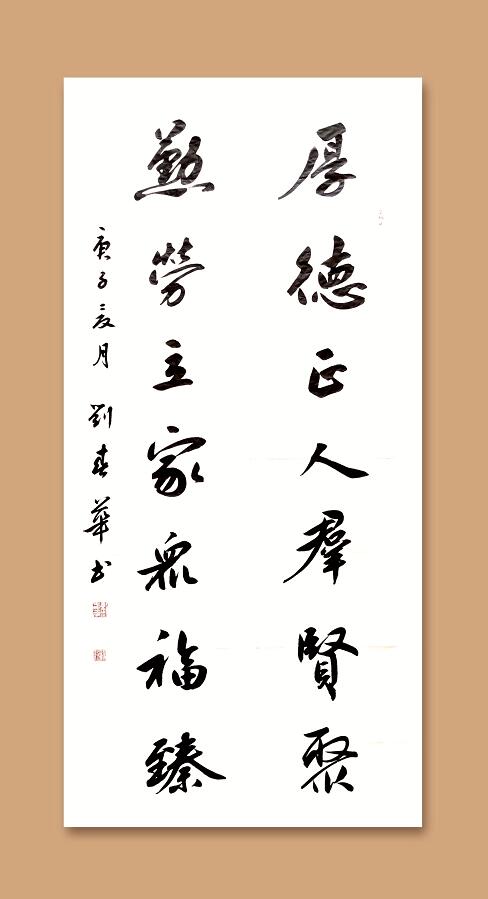 厚德正人群賢聚
懃勞立家衆福臻
庚子夏月 劉春華书